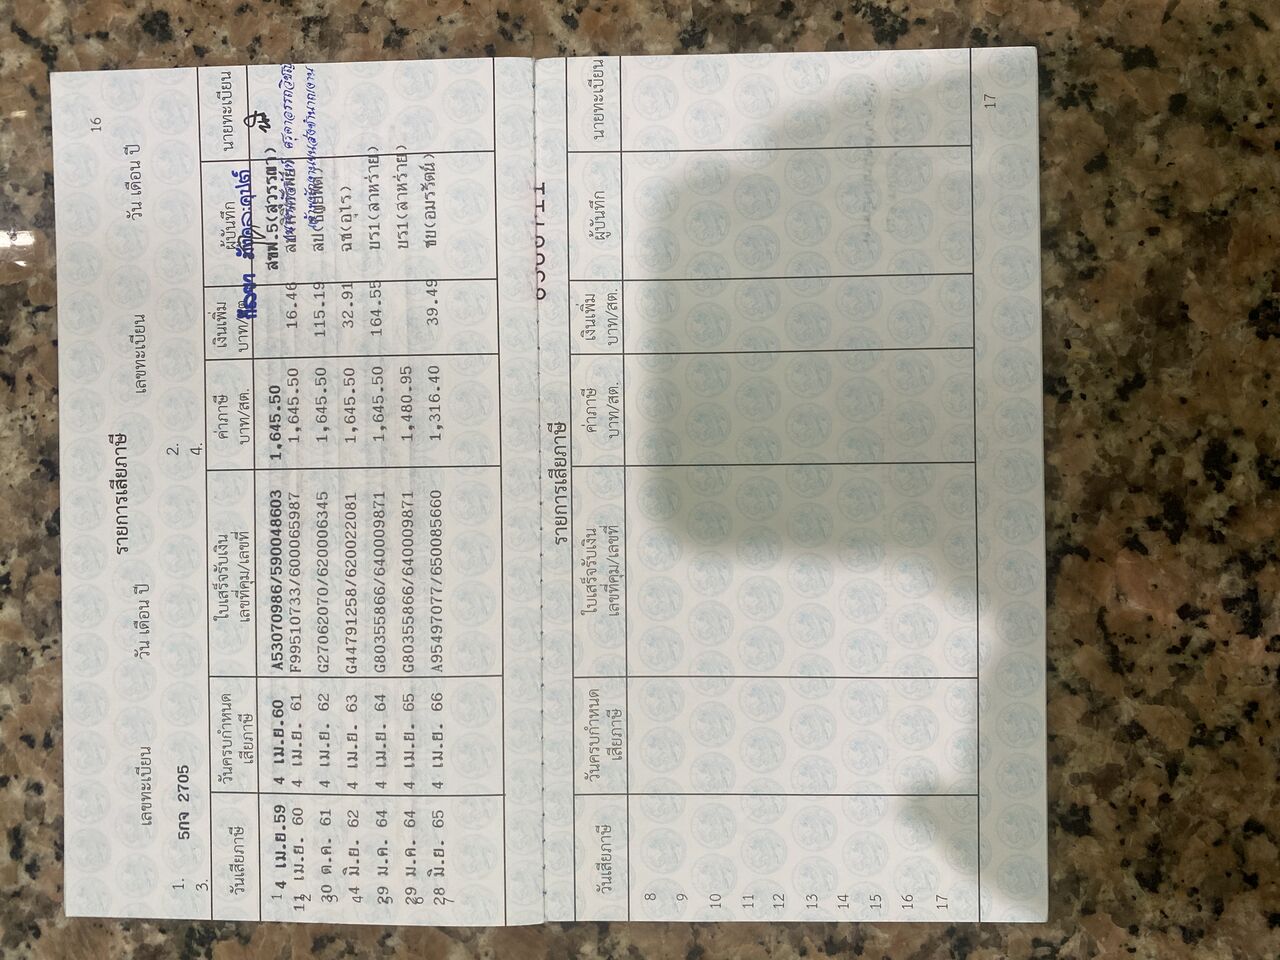 16
รายการเสียภาษี
เลขทะเบียน วัน เดือน ปี เลขทะเบียน วัน เดือน ปี
1. 5กจ 2705 2.
3. 4.
วันเสียภาษี วันครบกำหนดเสียภาษี ใบเสร็จรับเงิน เลขที่คุม/เลขที่ ค่าภาษี บาท/สต. เงินเพิ่ม บาท/สต. ผู้บันทึก นายทะเบียน
1 4 เม.ย.59 4 เม.ย.60 A53070986/590048603 1,645.50 สขพ.5(สุวรรณา)
2 11 เม.ย. 60 4 เม.ย. 61 F99510733/600065987 1,645.50 16.46
3 30 ต.ค. 61 4 เม.ย. 62 G27062070/620006345 1,645.50 115.19
4 4 มิ.ย. 62 4 เม.ย. 63 G44791258/620022081 1,645.50 32.91 ฉช(อุไร)
5 29 ม.ค. 64 4 เม.ย. 64 G80355866/640009871 1,645.50 164.55 บร1(สาหร่าย)
6 29 ม.ค. 64 4 เม.ย. 65 G80355866/640009871 1,480.95 บร1(สาหร่าย)
7 28 มิ.ย. 65 4 เม.ย. 66 A95497077/650085660 1,316.40 39.49 ชบ(อมรรัตน์)
รายการเสียภาษี
วันเสียภาษี วันครบกำหนดเสียภาษี ใบเสร็จรับเงิน เลขที่คุม/เลขที่ ค่าภาษี บาท/สต. เงินเพิ่ม บาท/สต. ผู้บันทึก นายทะเบียน
8
9
10
11
12
13
14
15
16
17
17